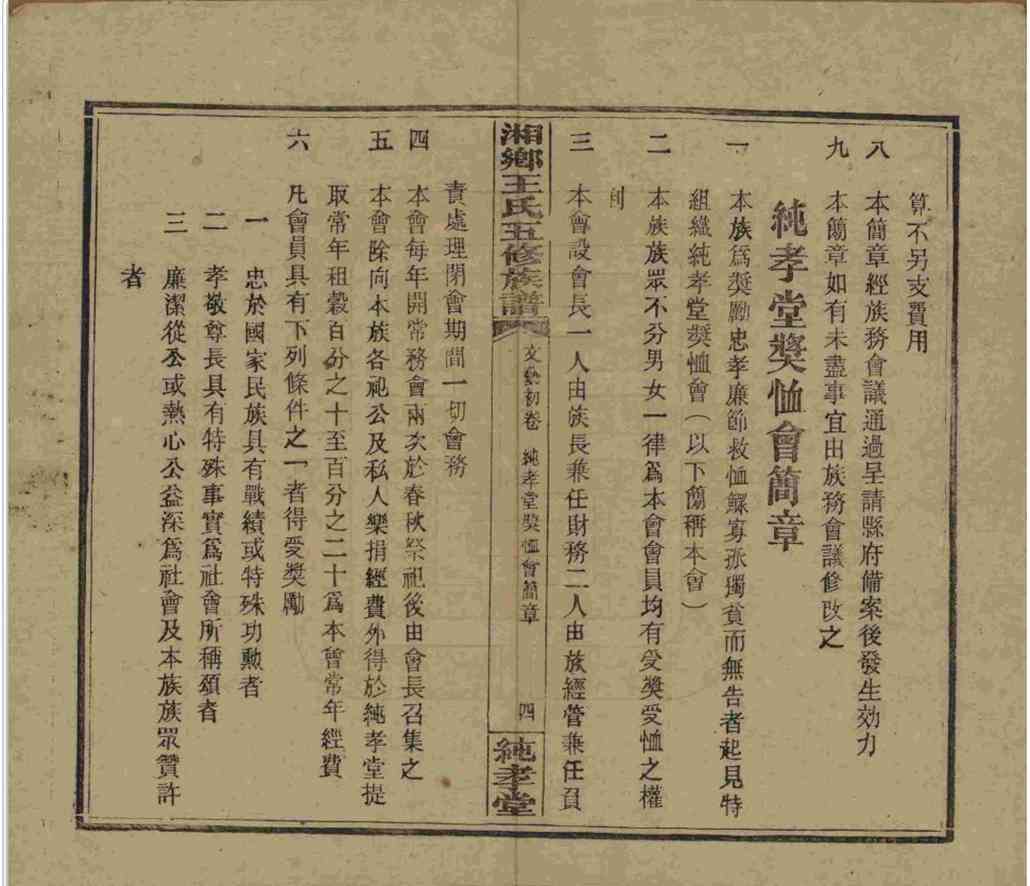 算不另支費用
八　本簡章經族務會議通過呈請縣府備案後發生効力
九　本簡章如有未盡事宜由族務會議修改之
純孝堂獎恤會簡章
一　本族爲獎勵忠孝廉節救恤鰥寡孤獨貧而無告者起見特
組織純孝堂獎恤會（以下簡稱本會）
二　本族族眾不分男女一律爲本會會員均有受獎受恤之權
利
三　本會設會長一人由族長兼任財務二人由族經管兼任負
湘鄉王氏五修族譜　文藝初卷　純孝堂獎恤會簡章　四　純孝堂
責處理閉會期間一切會務
四　本會每年開常務會兩次於春秋祭祀後由會長召集之
五　本會除向本族各祀公及私人樂捐經費外得於純孝堂提
取常年租穀百分之十至百分之二十爲本會常年經費
六　凡會員具有下列條件之一者得受獎勵
一　忠於國家民族具有戰績或特殊功勳者
二　孝敬尊長具有特殊事實爲社會所稱頌者
三　廉潔從公或熱心公益深爲社會及本族族眾贊許
者